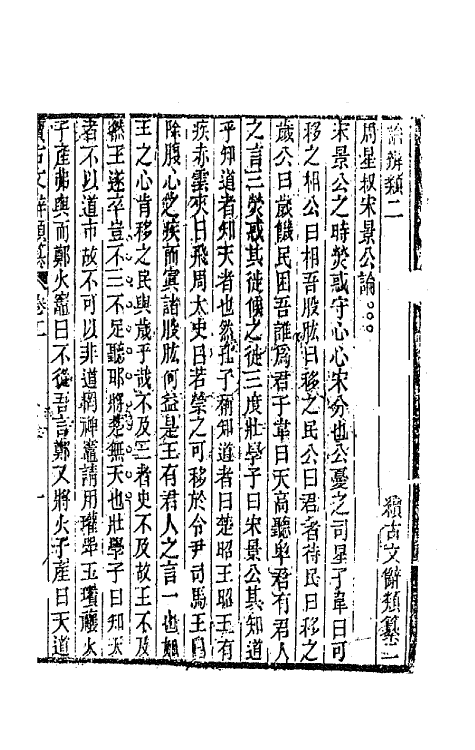 論辨類二　續古文辭類纂二
周星叔宋景公論○○○
宋景公之時熒或守心心宋分也公憂之司星子韋曰可
移之相公曰相吾股肱曰移之民公曰君者待民曰移之
歲公曰歲饑民困吾誰爲君子韋曰天高聽卑君有君人
之言三熒惑其徙候之徙三度壯學子曰宋景公其知道
乎知道者知天者也然孔子稱知道者曰楚昭王昭王有
疾赤雲夾日飛周太史曰若禜之可移於令尹司馬王曰
除腹心之疾而寘諸股肱何益是王有君人之言一也如
王之心肯移之民與歲乎哉不及三者史不及故王不及
然王遂卒豈不三不足聽耶將楚無天也壯學子曰知天
者不以道市故不可以非道罔神竈請用瓘斝玉瓚禳火
子產弗與而鄭火竈曰不從吾言鄭又將火子產曰天道
續古文辭類纂 卷二 一